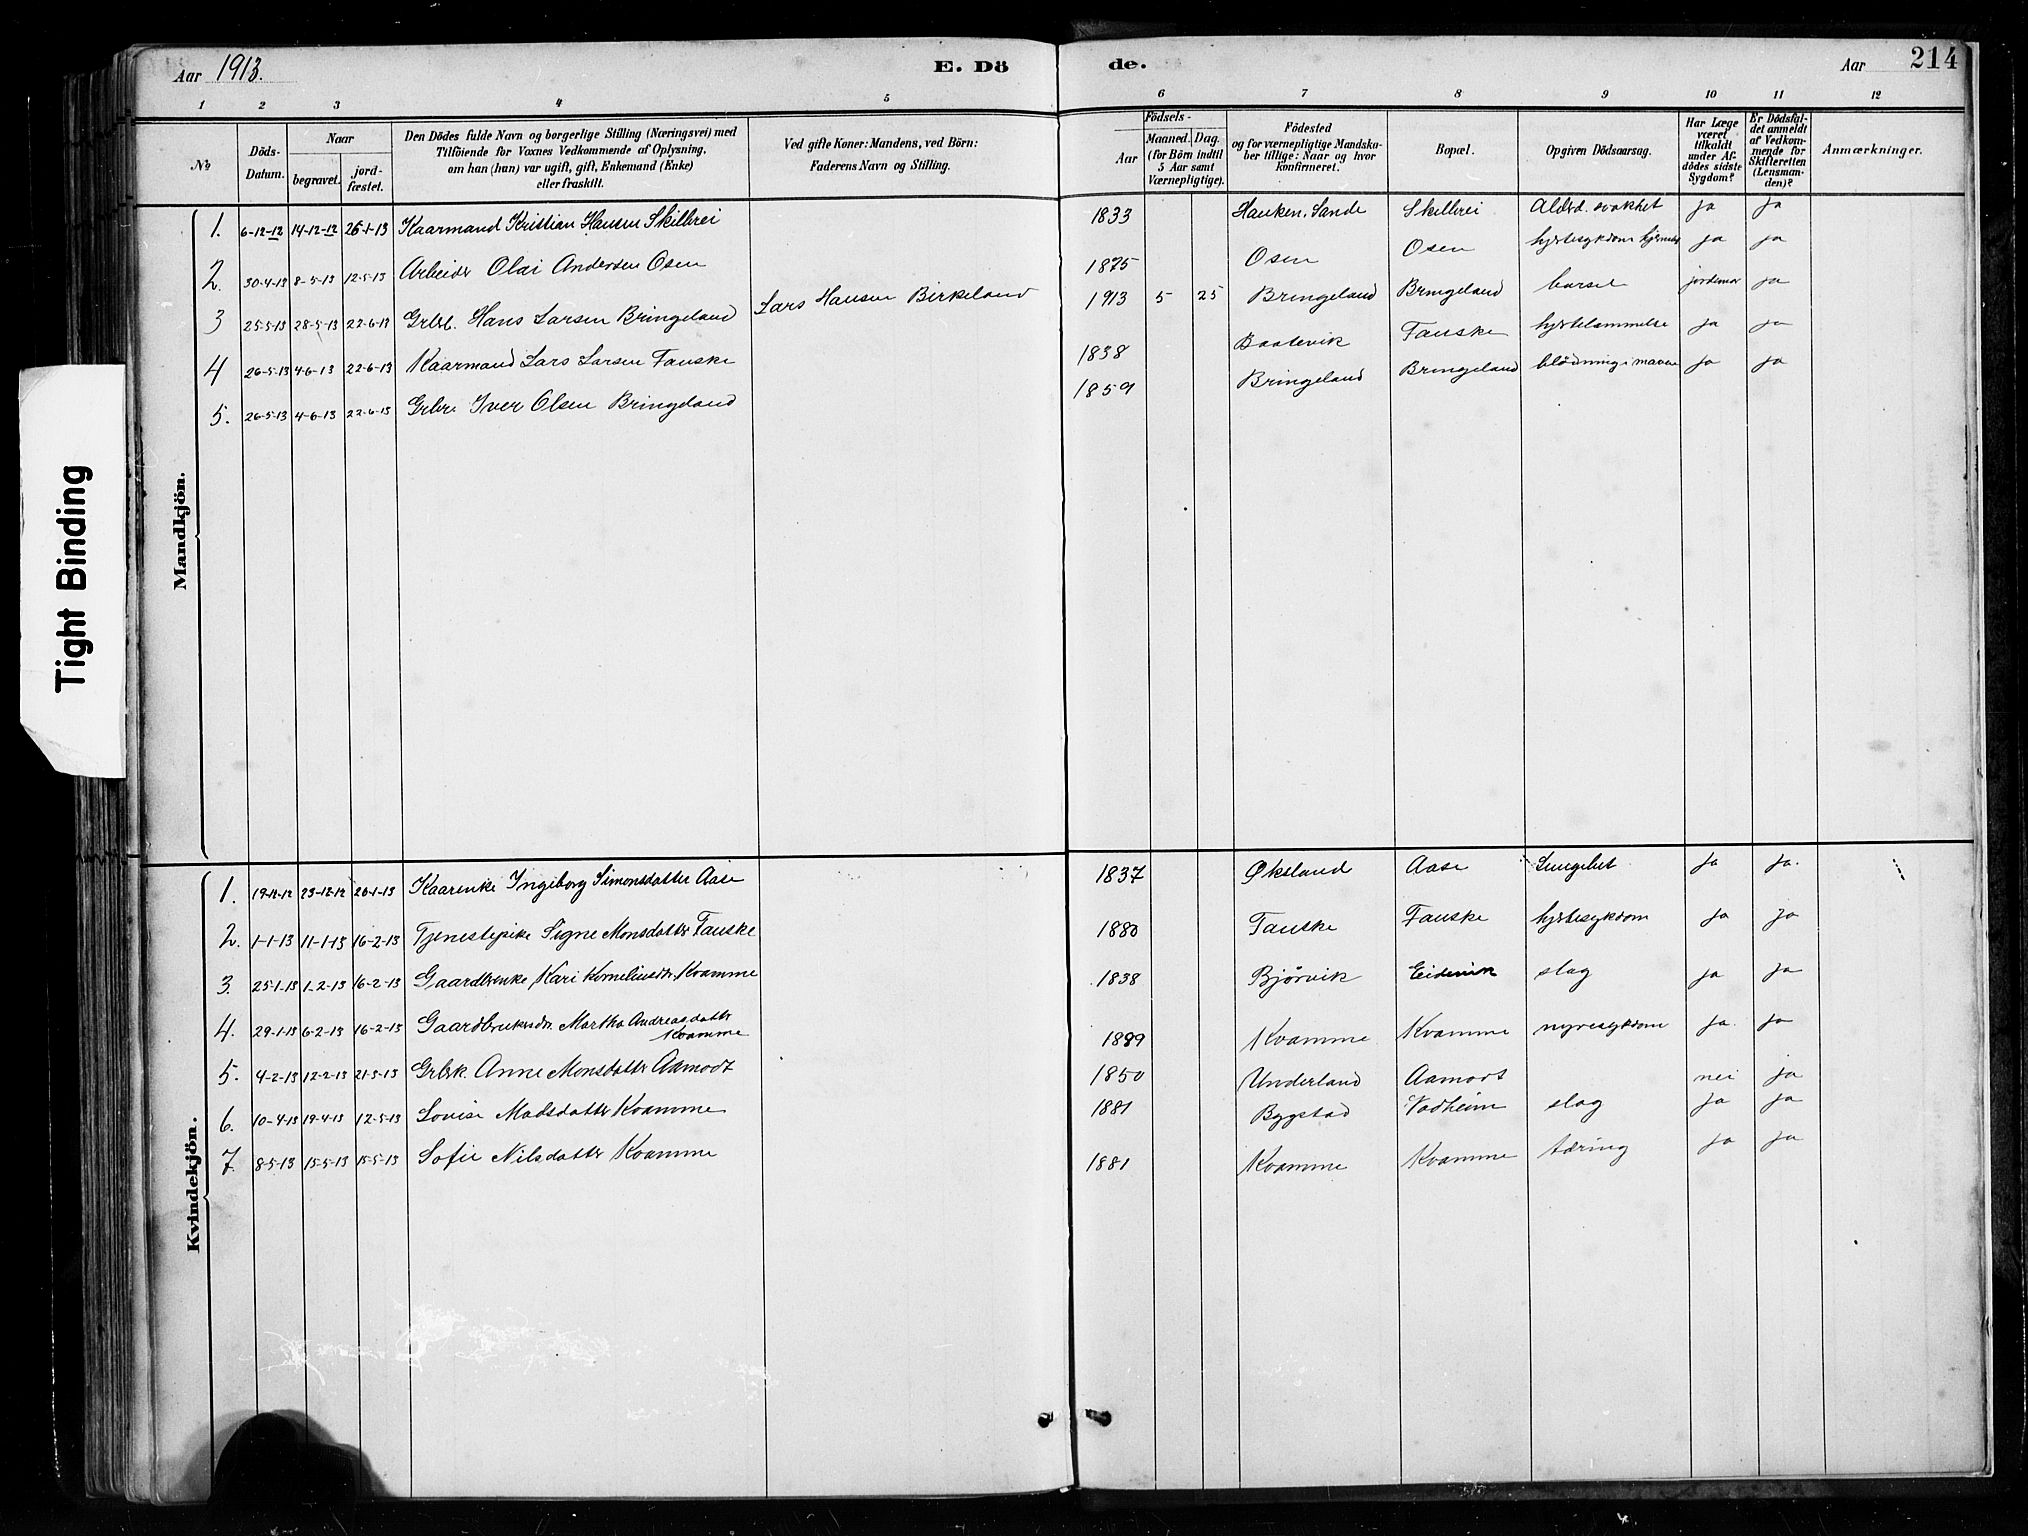 Aar 1913.
E. Dö de.
Aar 214
1 2 3 4 5 6 7 8 9 10 11 12
No
Döds-Datum.
Naar
begravet.
jord-fæstet.
Den Dödes fulde Navn og borgerlige Stilling (Næringsvei) med
Tilföiende for Voxnes Vedkommende af Oplysning,
om han (hun) var ugift, gift, Enkemand (Enke)
eller fraskilt.
Ved gifte Koner: Mandens, ved Börn:
Faderens Navn og Stilling.
Födsels-
Aar
Maaned. Dag.
(for Börn indtil
5 Aar samt
Værnepligtige).
Födested
og for værnepligtige Mandska-
ber tillige: Naar og hvor
konfirmeret.
Bopæl.
Opgiven Dödsaarsag.
Har Læge
været
tilkaldt
under Af-
dödes sidste
Sygdom?
Er Dödsfal-
det anmeldt
af Vedkom-
mende for
Skifteretten
(Lensman-
den)?
Anmærkninger.
Mandkjön.
1. 6-12-12 14-12-12 26-1-13 Kaarmand Kristian Hansen Skilbrei 1833 Hauken, Sande Skilbrei Alderd. svakhet ja ja
2. 30-4-13 8-5-13 12-5-13 Arbeider Olai Andersen Osen 1875 Osen Osen hjertesykdom ja ja
3 25-5-13 28-5-13 22-6-13 Grbr. Hans Larsen Bringeland Lars Hansen Birkeland 1913 5 25 Bringeland Bringeland barsel jordmor ja
4 26-5-13 4-6-13 22-6-13 Kaarmand Lars Larsen Fauske 1838 Baatevik Fauske hjertelammelse ja ja
5. 26-5-13 4-6-13 22-6-13 Grbr. Iver Olsen Bringeland 1859 Bringeland Bringeland blødning i maven ja ja
Kvindekjön.
1. 19-12-12 23-12-12 26-1-13 Kaarenke Ingeborg Simonsdatter Aase 1837 Øksland Aase Lungebet. ja ja.
2. 1-1-13 11-1-13 16-2-13 Tjenestepike Signe Monsdatter Fauske 1880 Fauske Fauske hjertesykdom ja ja
3. 25-1-13 1-2-13 16-2-13 Gaardbrenke Kari Korneliusdtr. Kvamme 1838 Bjørvik Eidevik slag ja ja
4. 29-1-13 6-2-13 16-2-13 Gaardbrukersdtr. Martha Andreasdatter
Kvamme 1899 Kvamme Kvamme nyresykdom ja. ja
5. 4-2-13 12-2-13 21-3-13 Grbrk. Anne Monsdatter Aamodt 1850 Underland Aamodt nei ja
6. 10-4-13 19-4-13 12-5-13 Lovise Madsdatter Kvamme 1881 Bygstad Vadheim slag ja ja
7 8-5-13 15-5-13 15-5-13 Sofie Nilsdatter Kvamme 1881 Kvamme Kvamme tæring ja ja
Tight Binding